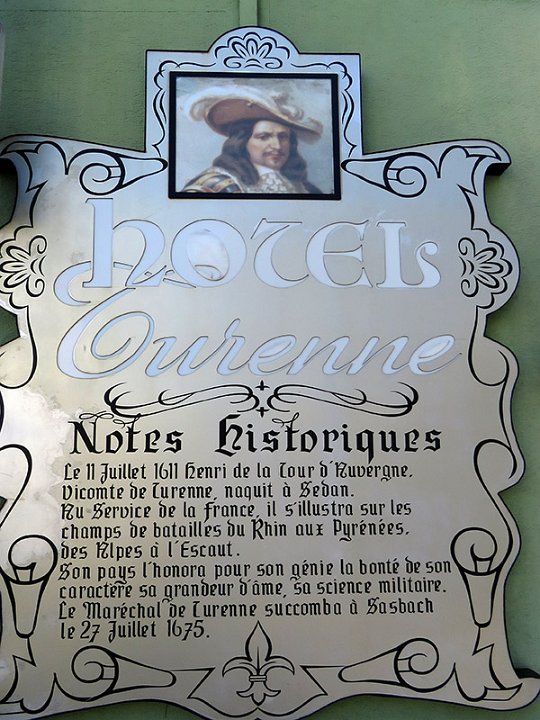 HOTEL
Turenne
Notes Historiques
Le 11 Juillet 1611 Henri de la Tour d'Auvergne,
Vicomte de Turenne, naquit à Sedan.
Au Service de la France, il s'illustra sur les
champs de batailles du Rhin aux Pyrénées,
des Alpes à l'Escaut.
Son pays l'honora pour son génie la bonté de son
caractère sa grandeur d'âme, sa science militaire.
Le Maréchal de Turenne succomba à Sasbach
le 27 Juillet 1675.